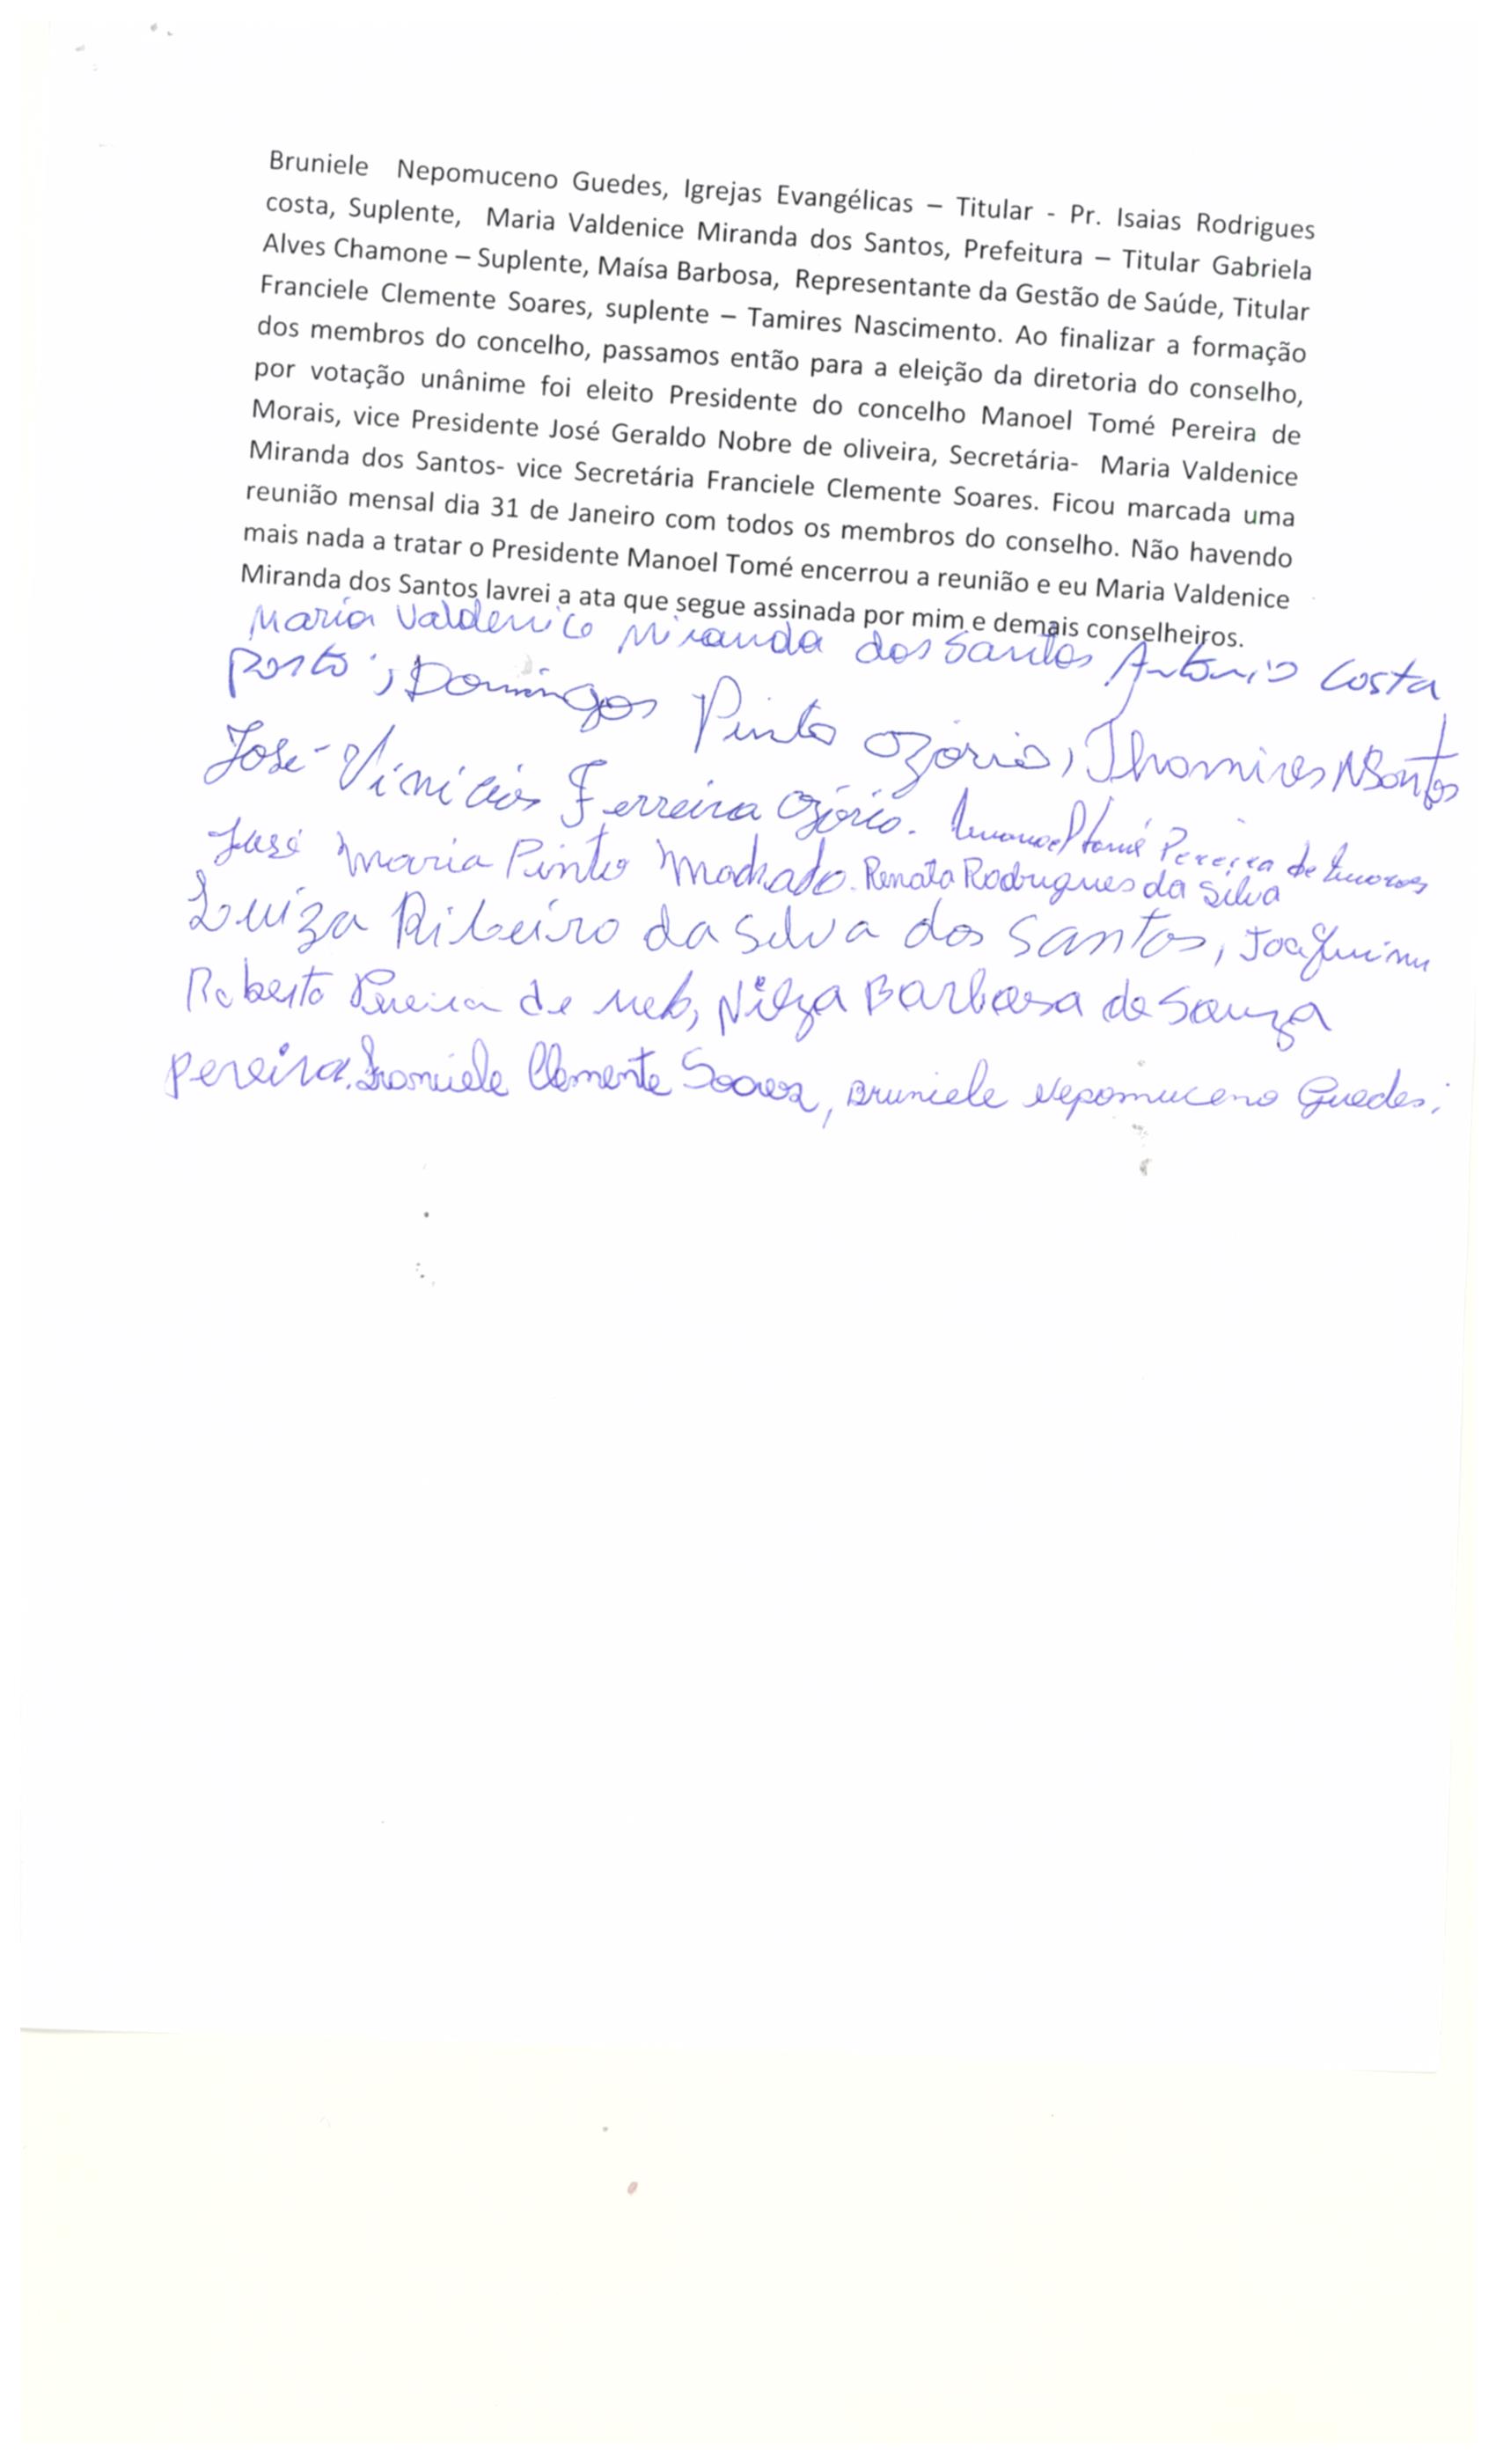 Bruniele Nepomuceno Guedes, Igrejas Evangélicas – Titular - Pr. Isaias Rodrigues
costa, Suplente, Maria Valdenice Miranda dos Santos, Prefeitura – Titular Gabriela
Alves Chamone – Suplente, Maísa Barbosa, Representante da Gestão de Saúde, Titular
Franciele Clemente Soares, suplente – Tamires Nascimento. Ao finalizar a formação
dos membros do concelho, passamos então para a eleição da diretoria do conselho,
por votação unânime foi eleito Presidente do concelho Manoel Tomé Pereira de
Morais, vice Presidente José Geraldo Nobre de oliveira, Secretária- Maria Valdenice
Miranda dos Santos- vice Secretária Franciele Clemente Soares. Ficou marcada uma
reunião mensal dia 31 de Janeiro com todos os membros do conselho. Não havendo
mais nada a tratar o Presidente Manoel Tomé encerrou a reunião e eu Maria Valdenice
Miranda dos Santos lavrei a ata que segue assinada por mim e demais conselheiros.
Maria Valdenice Miranda dos Santos Antonio Costa
Porto, Domingos Pinto Ozório, Thamires NSantos
José Vinicius Ferreira Ozório. Manoel tomé Pereira de
José Maria Pinto Machado. Renata Rodrigues da Silva
Luiza Ribeiro da Silva dos Santos, Joaquim
Roberto Pereira de, Nilza Barbosa de Souza
Pereira. Franciele Clemente Soares, Bruniele Nepomuceno Guedes,